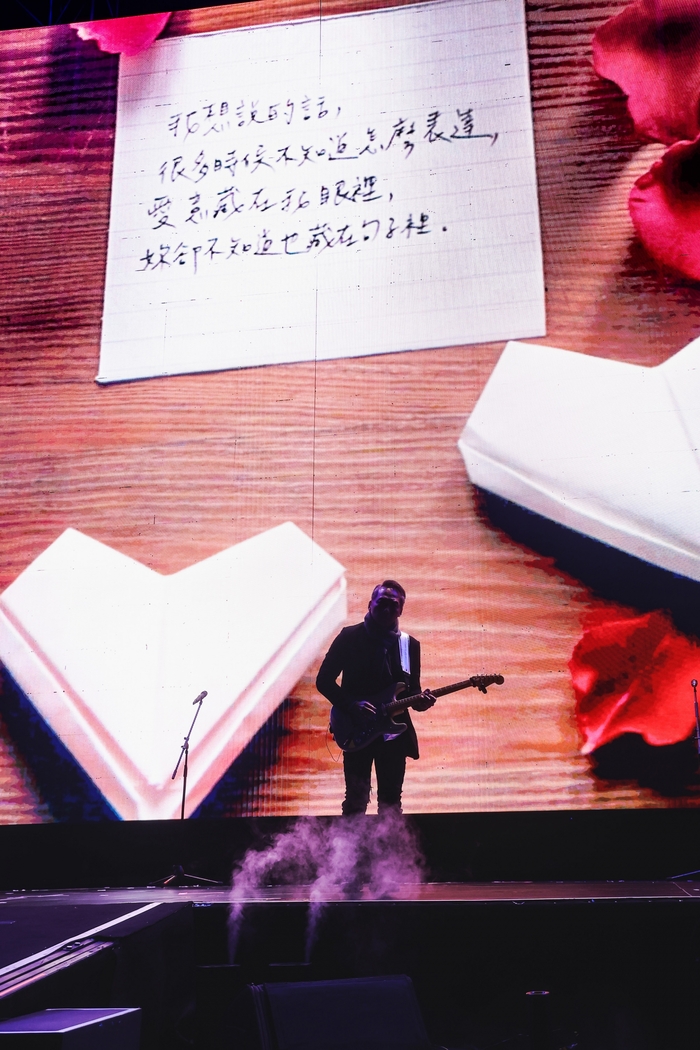 我想說的話，
很多時候不知道怎麼表達，
愛意藏在我眼裡，
妳卻不知道也藏在句子裡．